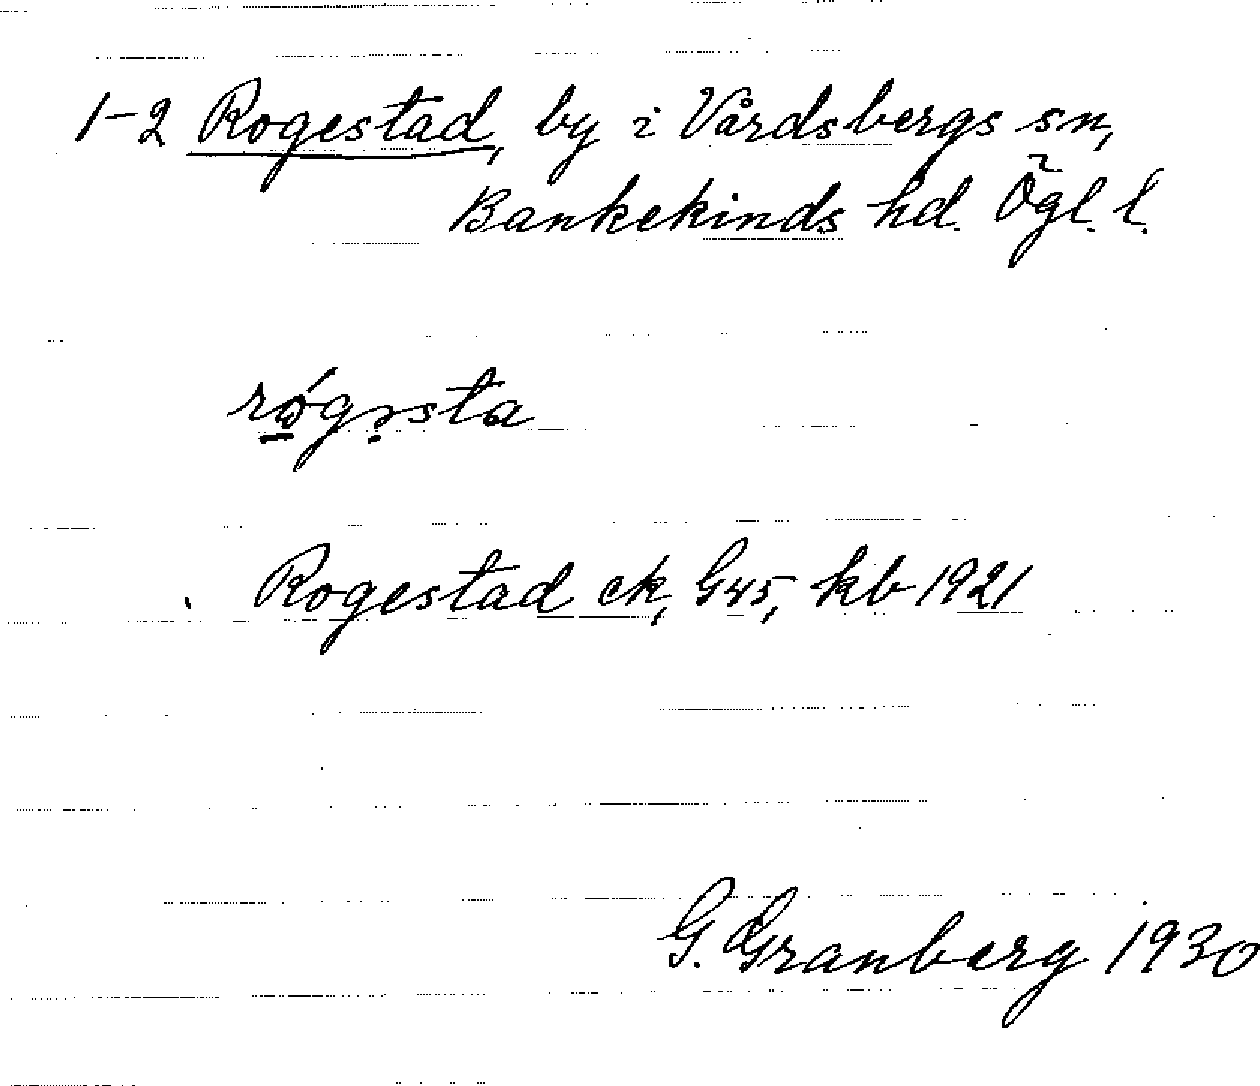 1-2 Rogestad, by i Vårdsbergs sn,
Bankekinds hd. Ögl. l.
Rogestad ek, G45, kb 1921
G. Granberg 1930